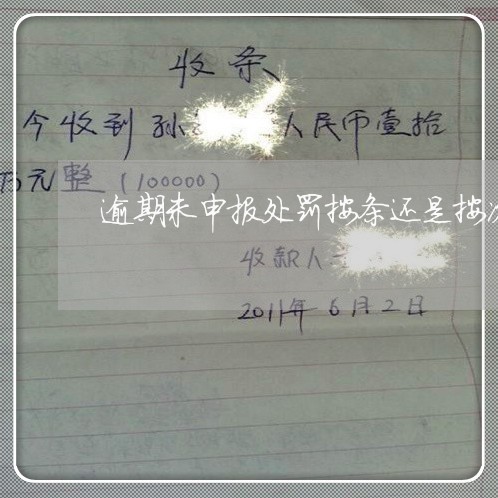 收条
今收到孙 人民币壹拾
万元整(100000)
逾期未申报处罚按条还是按次
收款人
2011年6月2日